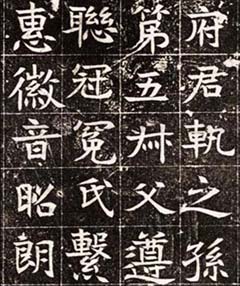 府君軌之孫
第五叔父遵
聯冠冕氏繫
惠徽音昭朗